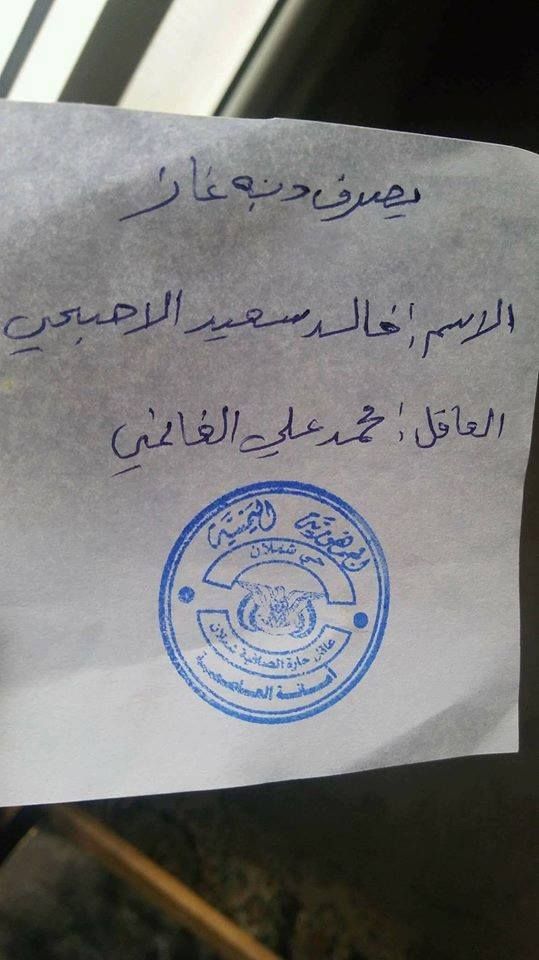 يصرف دبه غاز
الاسم: خالد سعيد الاصبحي
العاقل: محمد علي الغانمي
الجمهورية اليمنية
حي شملان
عاقل حارة الصافية شملان
أمانة العاصمة